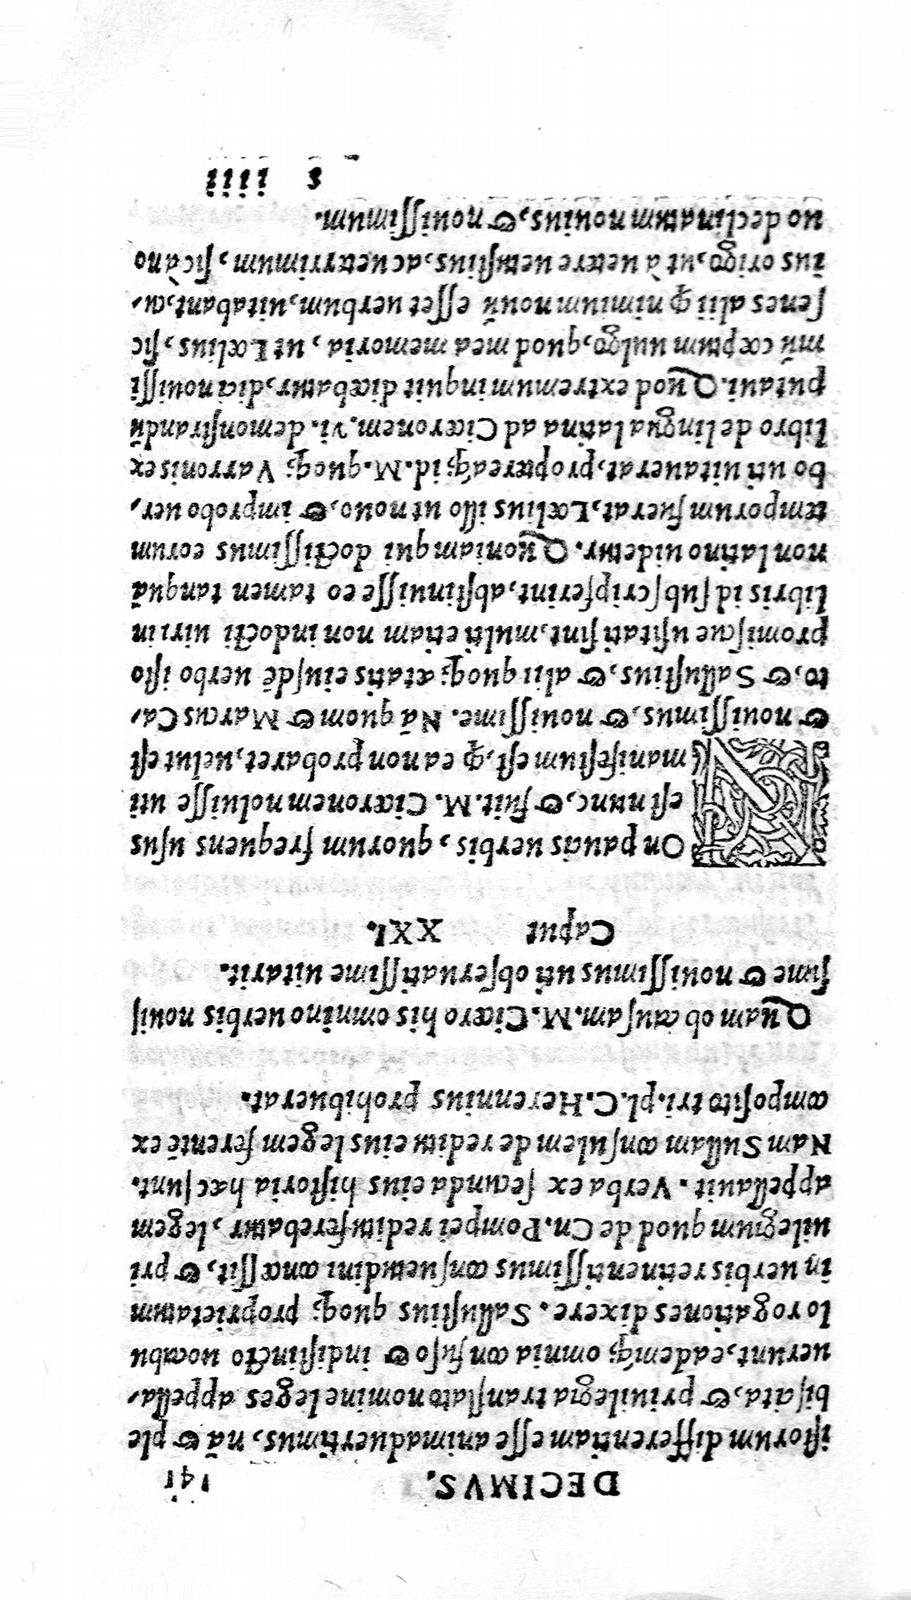 DECIMVS. 141
istorum differentiam esse animaduertimus, nã & ple
biscita, & priuilegia translato nomine leges appella,
uerunt, eademq; omnia confuso & indistincto uocabu
lo rogationes dixere. Sallustius quoq; proprietatum
in uerbis retinentissimus consuetudini concessit, & pri
uilegium quod de Cn. Pompei reditu ferebatur, legem
appellauit. Verba ex secunda eius historia hæc sunt.
Nam Sullam consulem de reditu eius legem ferentẽ ex
composito tri. pl. C. Herennius prohibuerat.
Quam ob causam. M. Cicero his omnino uerbis nouis
sime & nouissimus uti obseruatissime uitarit.
Caput XXI.
NOn paucis uerbis, quorum frequens usus
est nunc, & fuit. M. Ciceronem noluisse uti
manifestum est, ꝙ ea non probaret, uelut est
& nouissimus, & nouissime. Nã quom & Marcus Ca,
to, & Sallustius, & alii quoq; ætatis eiusdẽ uerbo isto
promiscue usitati sint, multi etiam non indocti uiri in
libris id suſ scripserint, abstinuisse eo tamen tanquã
non latino uidetur. Quoniam qui doctissimus eorum
temporum fuerat, L. ælius illo ut nouo, & improbo uer,
bo uti uitauerat, proptereaq; id. M. quoq; Varronis ex
libro de lingua latina ad Ciceronem. vi. demonstrandũ
putaui. Quod extremum inquit dicebatur, dici nouissi
mũ cœptum uulgo, quod mea memoria, ut L. ælius, sic
senes alii ꝙ nimium nouũ esset uerbum, uitabant, cu,
ius origo, ut à uetere uetustius, ac ueterrimum, sic à no
uo declinatum nouius, & nouissimum.
s iiii